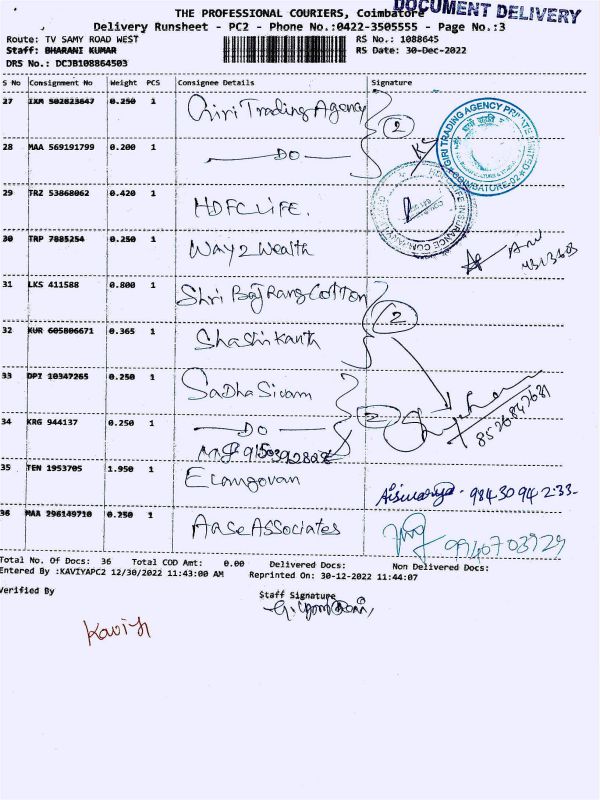 THE PROFESSIONAL COURIERS, Coimbatore
DOCUMENT DELIVERY
Delivery Runsheet - PC2 - Phone No.:0422-3505555 - Page No.:3
Route: TV SAMY ROAD WEST RS No.: 1088645
Staff: BHARANI KUMAR RS Date: 30-Dec-2022
DRS No.: DCJB108864503
S No Consignment No Weight PCS Consignee Details Signature
27 IXM 502823647 0.250 1 Giri Trading Agency
2
GIRI TRADING AGENCY PRIVATE LIMITED
COIMBATORE-02
28 MAA 569191799 0.200 1 DO
29 TRZ 53868062 0.420 1 HDFC LIFE.
LIFE INSURANCE COMPANY
30 TRP 7885254 0.250 1 Way 2 Wealth
31 LKS 411588 0.800 1 Shri Baj Rang Cotton
2
32 KUR 605806671 0.365 1 Shashi Kanth
33 DPI 10347265 0.250 1 SaDha Sivam
2
34 KRG 944137 0.250 1 DO
8526847681
35 TEN 1953705 1.950 1 Elangovan
Aiswarya. 984 30 94 233-
36 MAA 296149710 0.250 1 Aase Associates
9940703929
Total No. Of Docs: 36 Total COD Amt: 0.00 Delivered Docs: Non Delivered Docs:
Entered By :KAVIYAPC2 12/30/2022 11:43:00 AM Reprinted On: 30-12-2022 11:44:07
Verified By Staff Signature